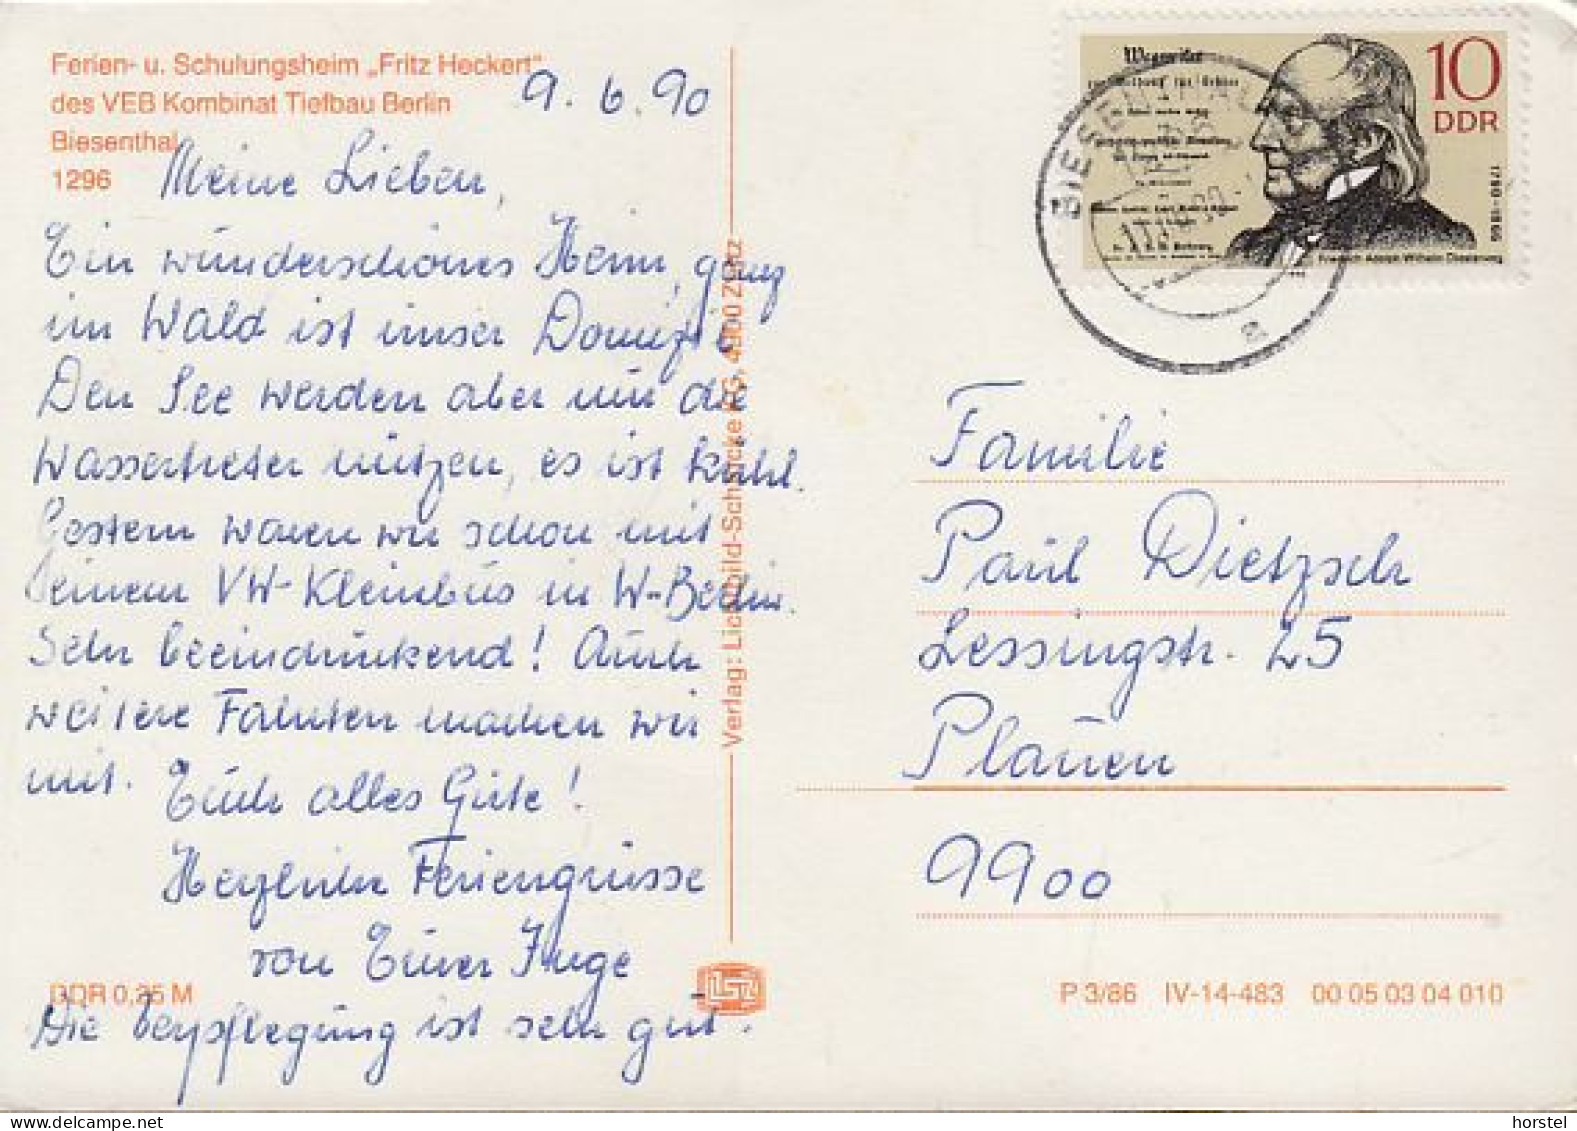 Ferien- u. Schulungsheim „Fritz Heckert“
des VEB Kombinat Tiefbau Berlin
Biesenthal
1296
9. 6. 90
Meine Lieben,
Ein wunderschönes Heim, ganz
im Wald ist unser Domizil.
Den See werden aber nur die
Wassertreter nutzen, es ist kühl.
Gestern waren wir schon mit
einem VW-Kleinbus in W-Berlin.
Sehr beeindruckend! Auch
weitere Fahrten machen wir
mit. Euch alles Gute!
Herzliche Feriengrüsse
von Eurer Inge
Die Verpflegung ist sehr gut.
DDR 0,25 M
Verlag: Lichtbild-Schincke KG, 4900 Zeitz
Wegweiser
10
DDR
1790-1866
Friedrich Adolph Wilhelm Diesterweg
BIESENTHAL
a
Familie
Paul Dietzsch
Lessingstr. 25
Plauen
9900
P 3/86 IV-14-483 00 05 03 04 010
horstel